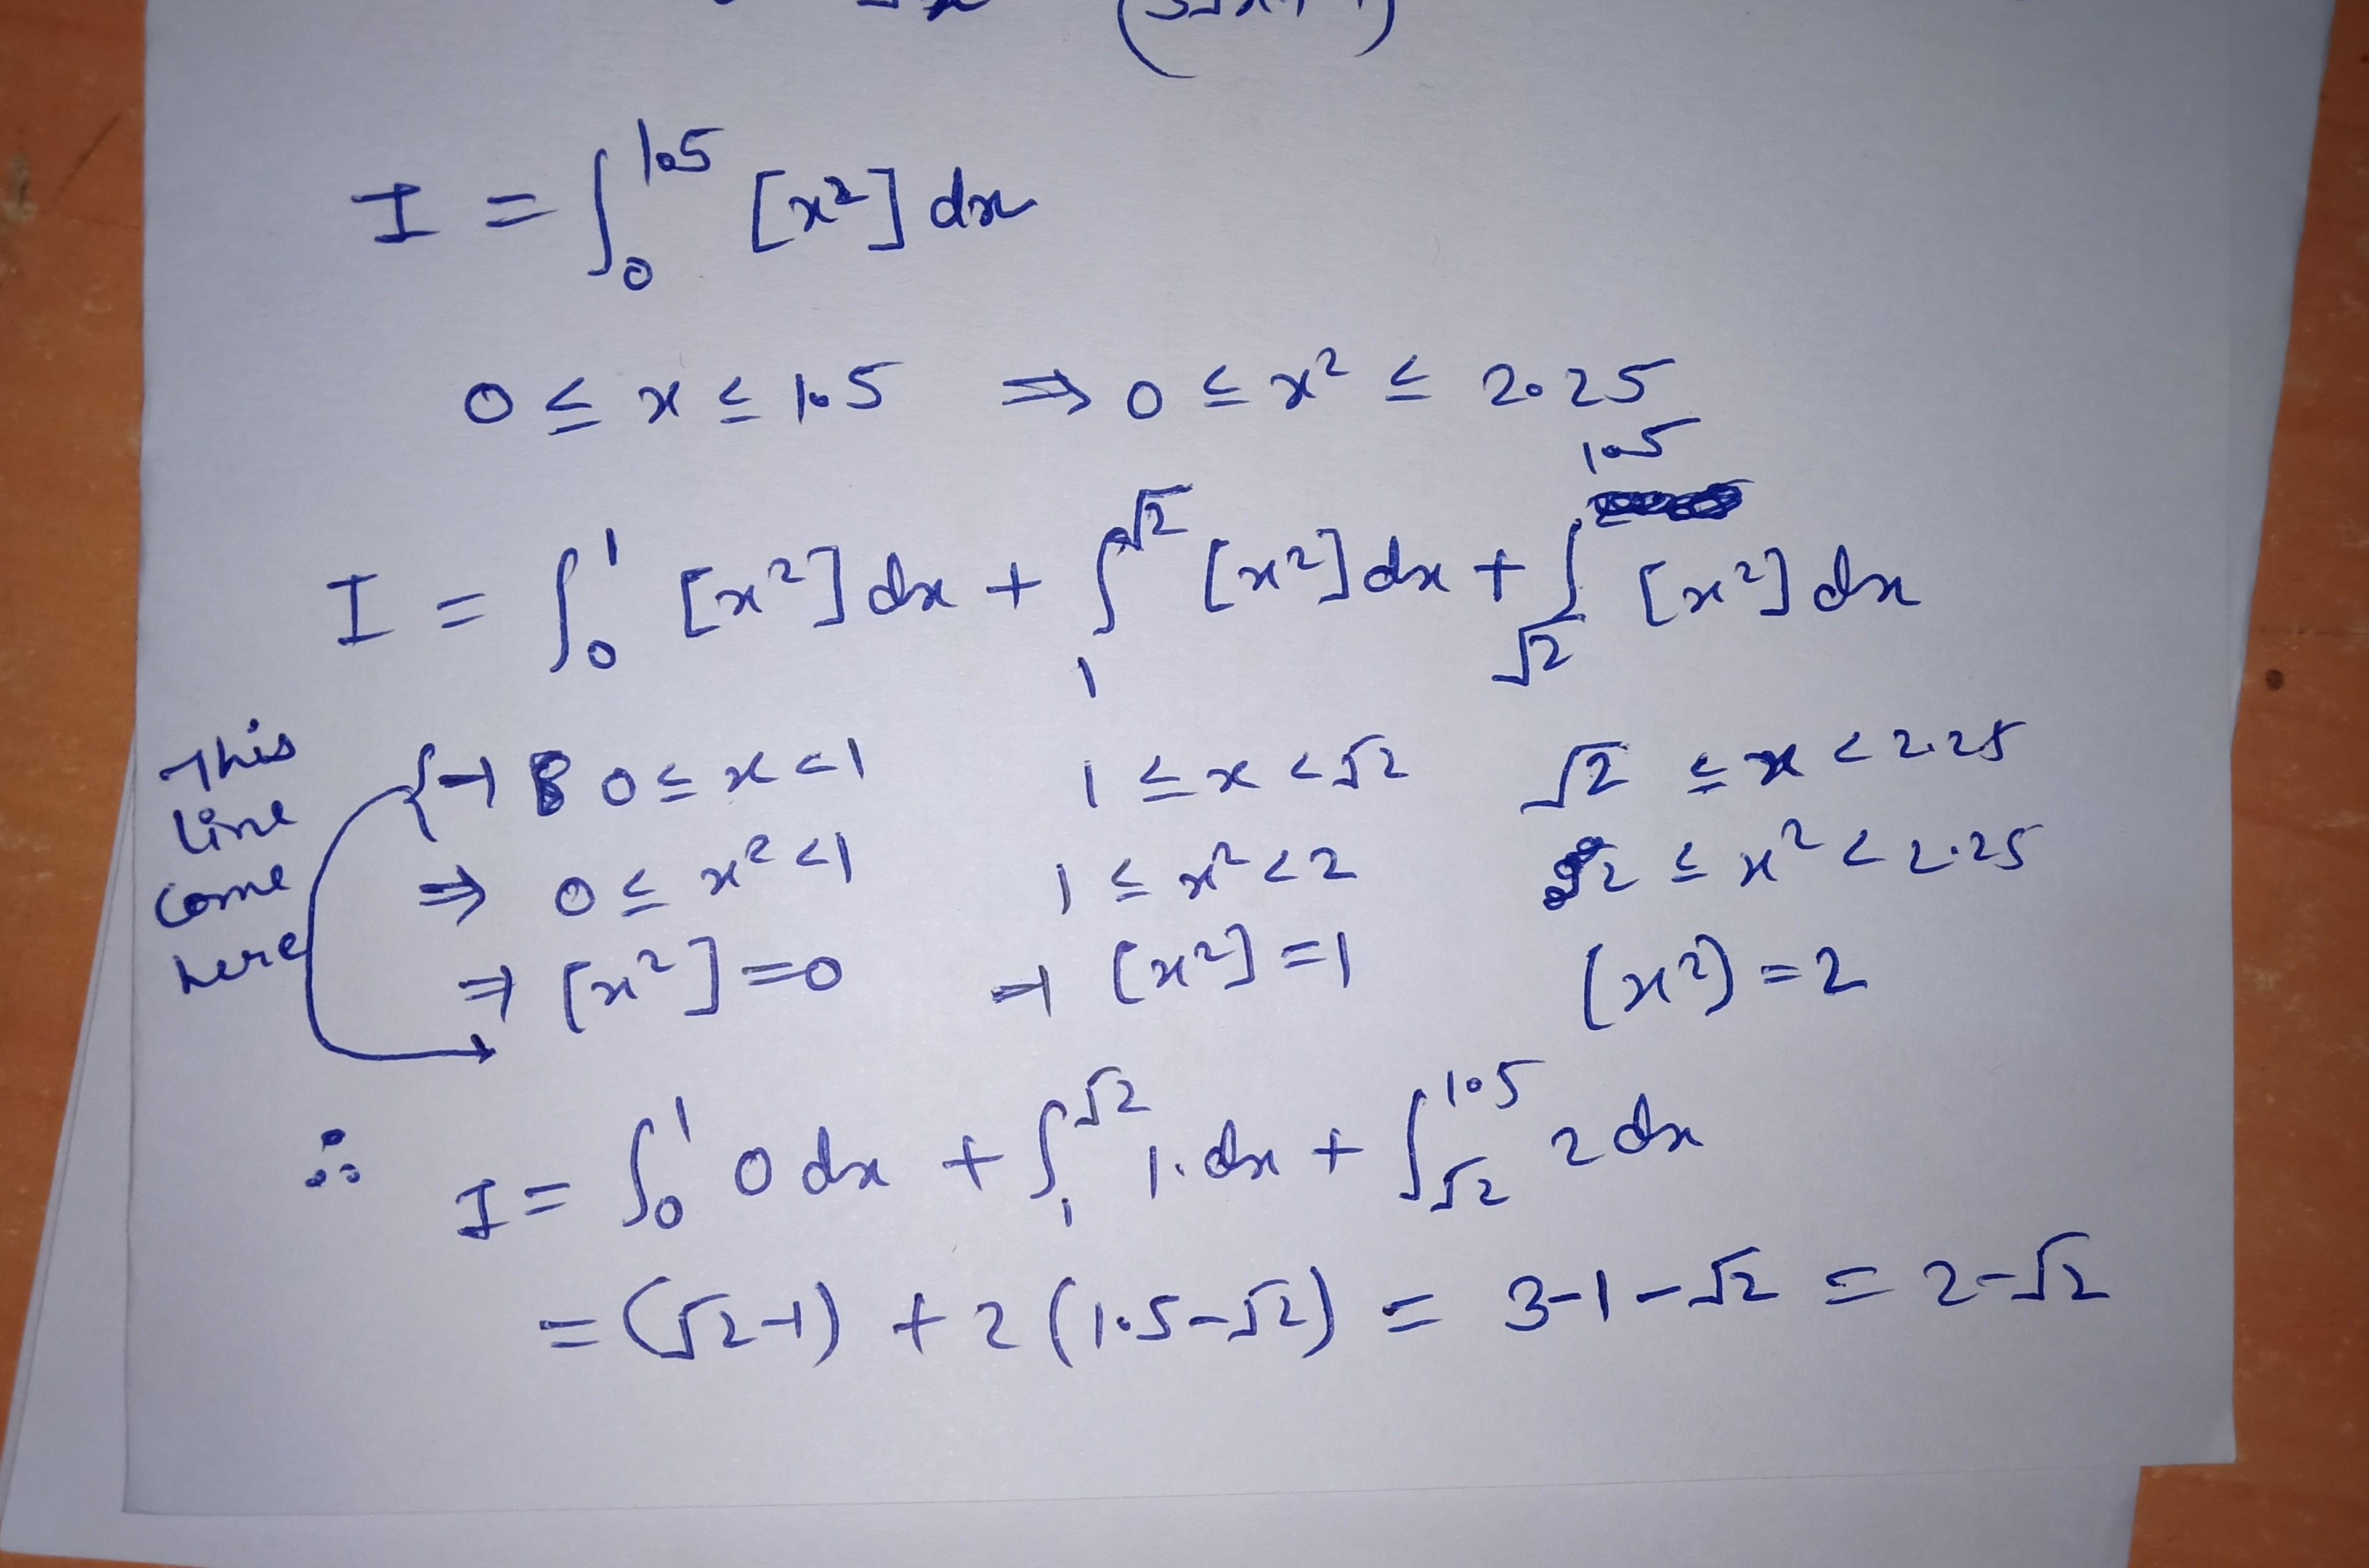 I = ∫₀^1.5 [x²] dx
0 ≤ x ≤ 1.5 ⇒ 0 ≤ x² ≤ 2.25
I = ∫₀^1 [x²] dx + ∫₁^√2 [x²] dx + ∫_√2^1.5 [x²] dx
This line come here
→ 0 ≤ x < 1 1 ≤ x < √2 √2 ≤ x < 2.25
⇒ 0 ≤ x² < 1 1 ≤ x² < 2 2 ≤ x² < 2.25
⇒ [x²] = 0 → [x²] = 1 (x²) = 2
∴ I = ∫₀^1 0 dx + ∫₁^√2 1. dx + ∫_√2^1.5 2 dx
= (√2-1) + 2 (1.5-√2) = 3-1-√2 = 2-√2